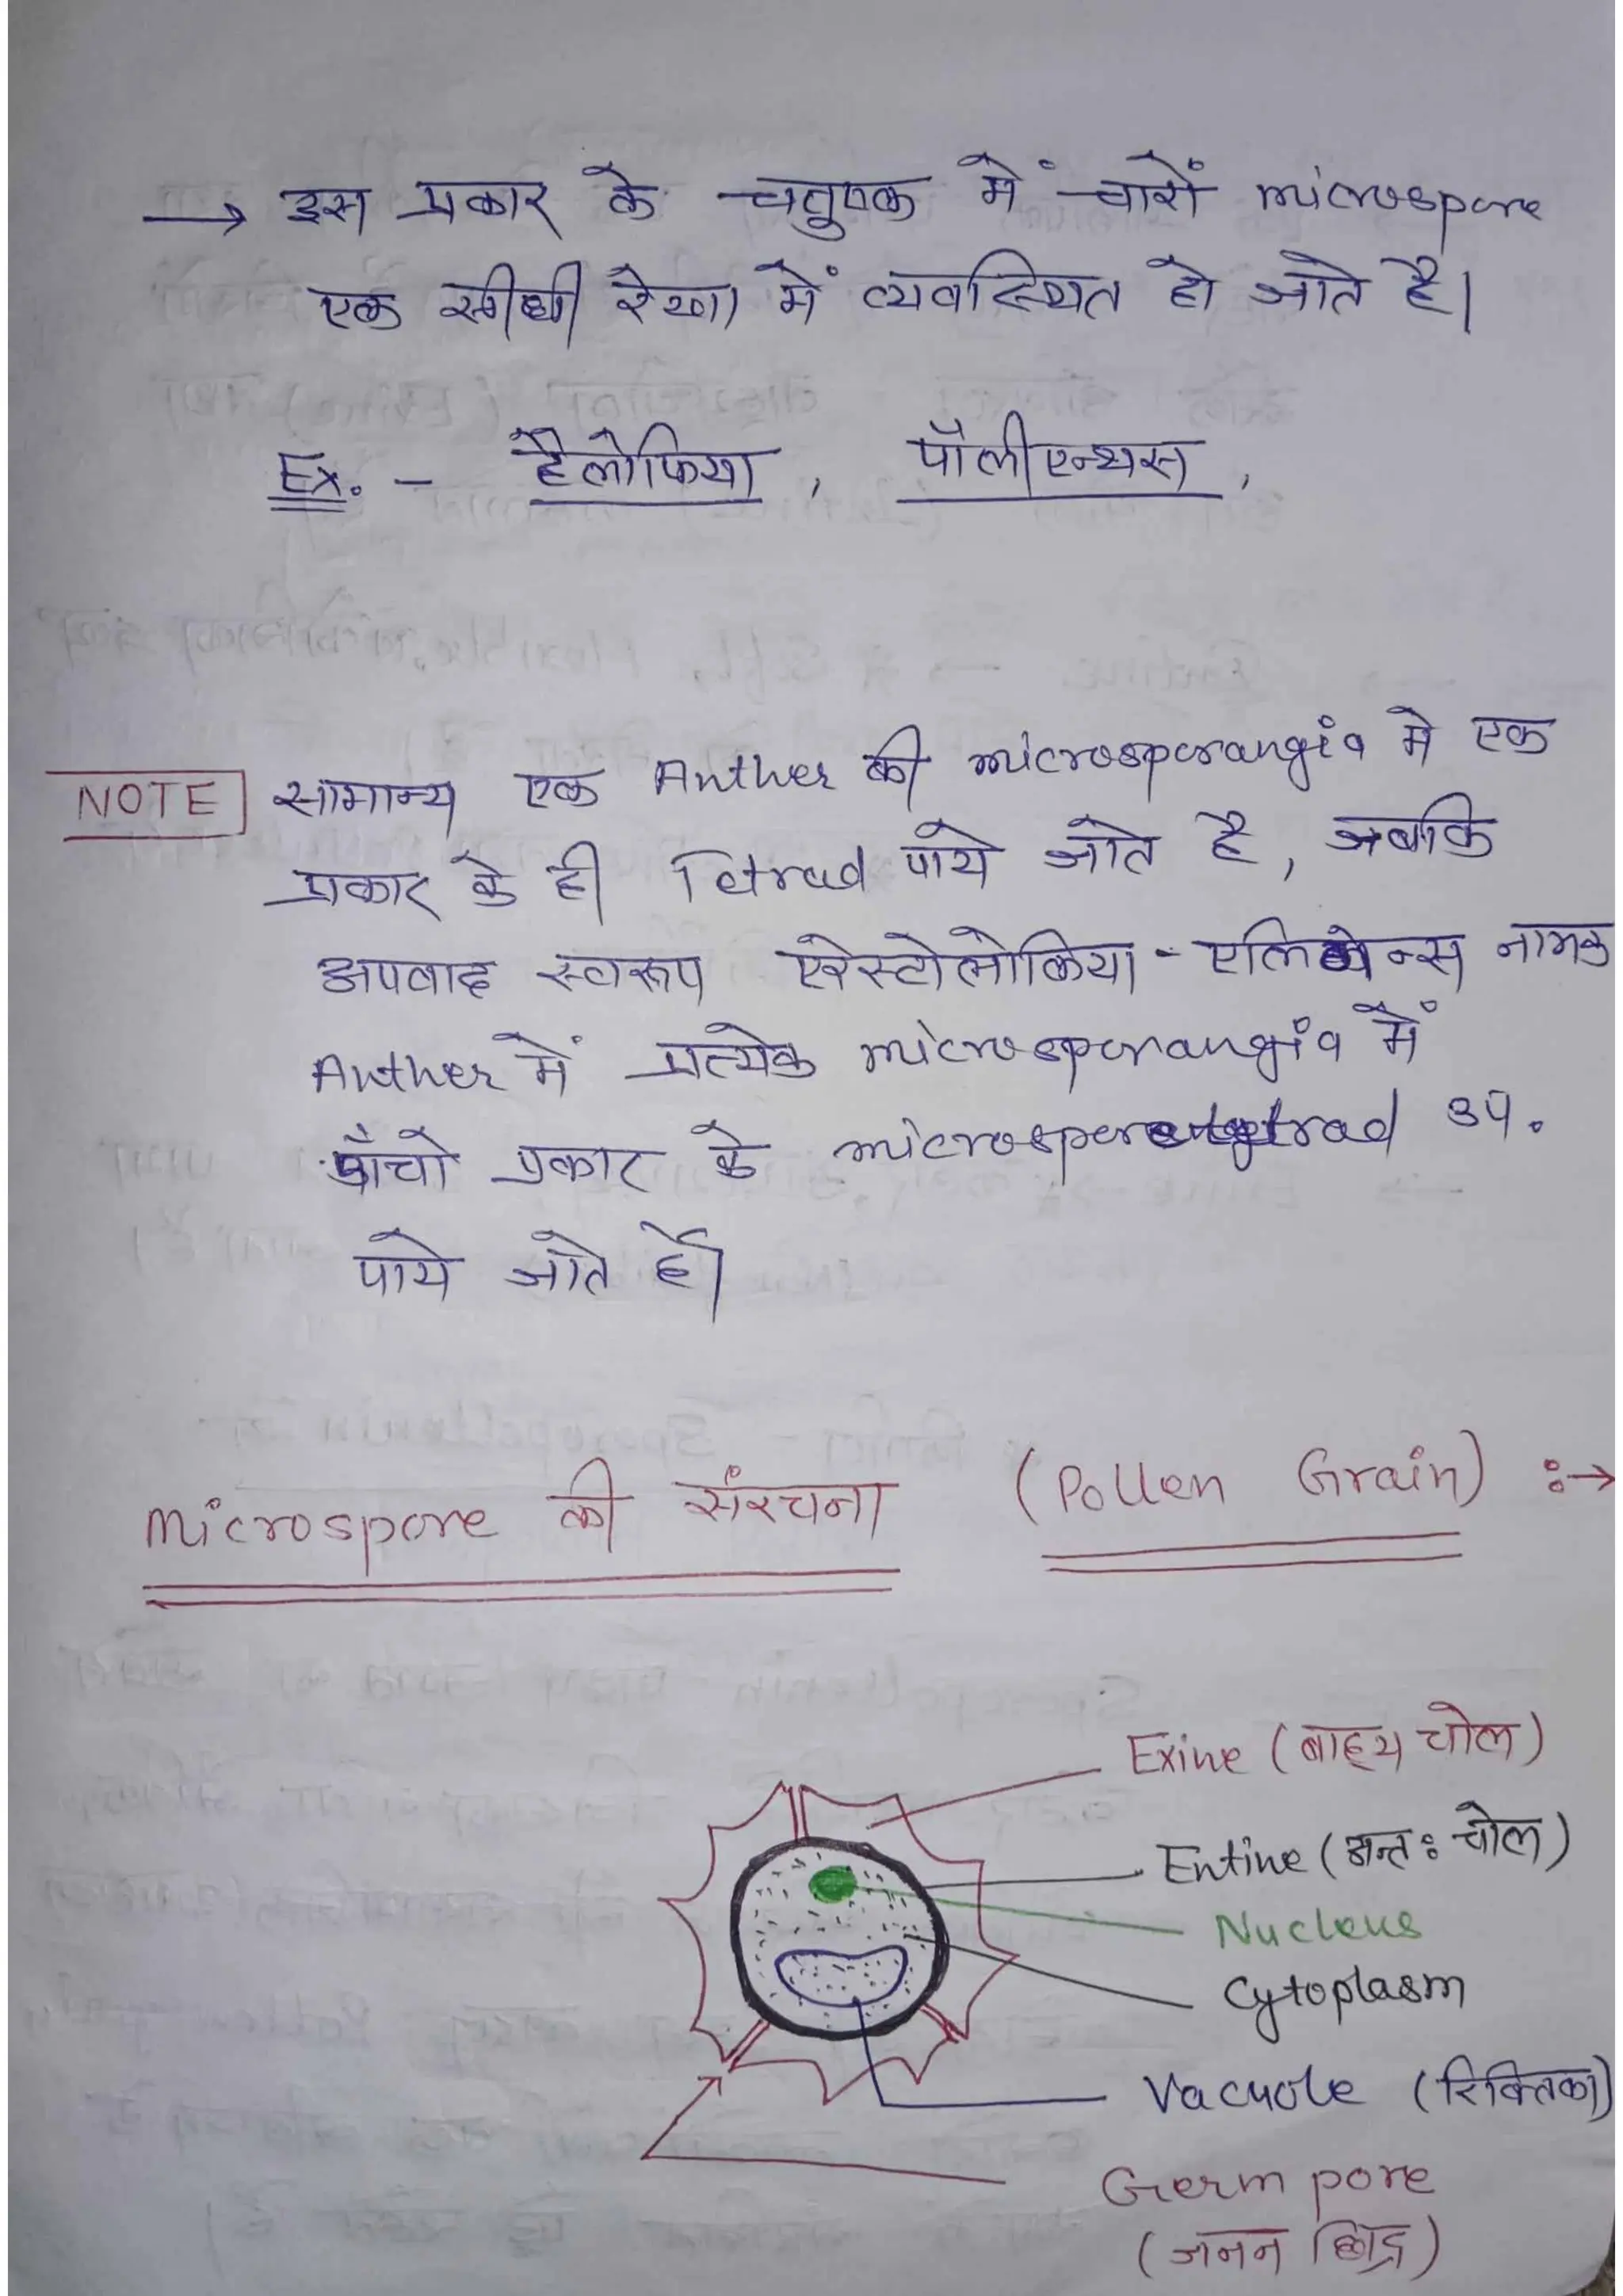 → इस प्रकार के चतुष्क में चारों microspore
एक सीधी रेखा में व्यवस्थित हो जाते है।
Ex. - हैलोफिया, पॉलीएन्थस,
NOTE सामान्य एक Anther की microsporangia मे एक
प्रकार के ही Tetrad पाये जाते है, जबकि
अपवाद स्वरूप ऐरेस्टोलोकिया - एलिगेन्स नामक
Anther में प्रत्येक microsporangia में
पाँचो प्रकार के microspore tetrad
पाये जाते हैं।
Microspore की संरचना (Pollen Grain) :→
Exine (बाह्य चोल)
Entine (अन्त: चोल)
Nucleus
Cytoplasm
Vacuole (रिक्तिका)
Germ pore
(जनन छिद्र)